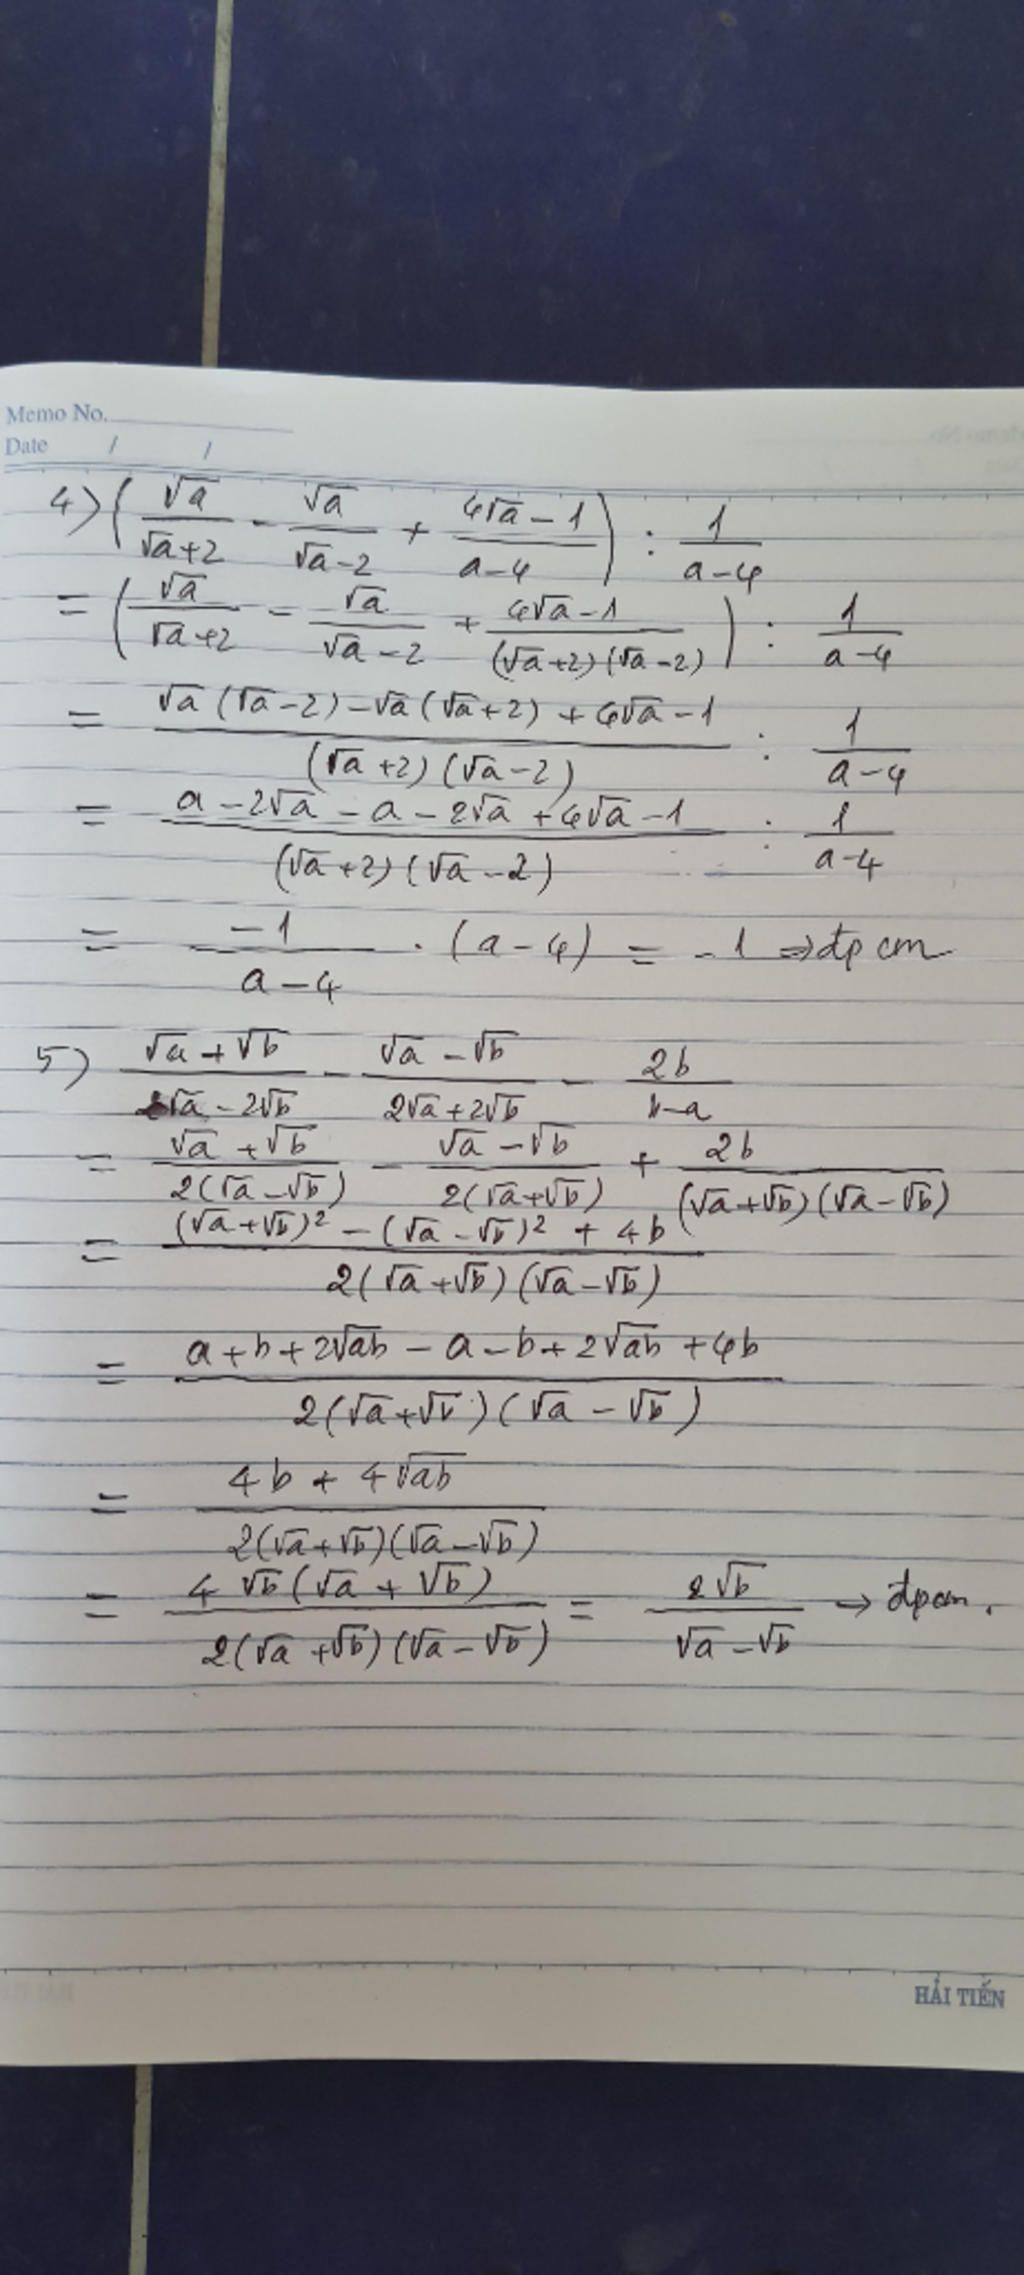 Memo No.
Date / /
4) (√a/(√a+2) - √a/(√a-2) + (4√a-1)/(a-4)) : 1/(a-4)
= (√a/(√a+2) - √a/(√a-2) + (4√a-1)/((√a+2)(√a-2))) : 1/(a-4)
= (√a(√a-2)-√a(√a+2)+4√a-1)/((√a+2)(√a-2)) : 1/(a-4)
= (a-2√a-a-2√a+4√a-1)/((√a+2)(√a-2)) : 1/(a-4)
= -1/(a-4) . (a-4) = -1 ⇒ đpcm
5) (√a+√b)/(2√a-2√b) - (√a-√b)/(2√a+2√b) - 2b/(b-a)
= (√a+√b)/(2(√a-√b)) - (√a-√b)/(2(√a+√b)) + 2b/((√a+√b)(√a-√b))
= ((√a+√b)² - (√a-√b)² + 4b)/(2(√a+√b)(√a-√b))
= (a+b+2√ab-a-b+2√ab+4b)/(2(√a+√b)(√a-√b))
= (4b+4√ab)/(2(√a+√b)(√a-√b))
= (4√b(√a+√b))/(2(√a+√b)(√a-√b)) = 2√b/(√a-√b) → đpcm.
HẢI TIẾN